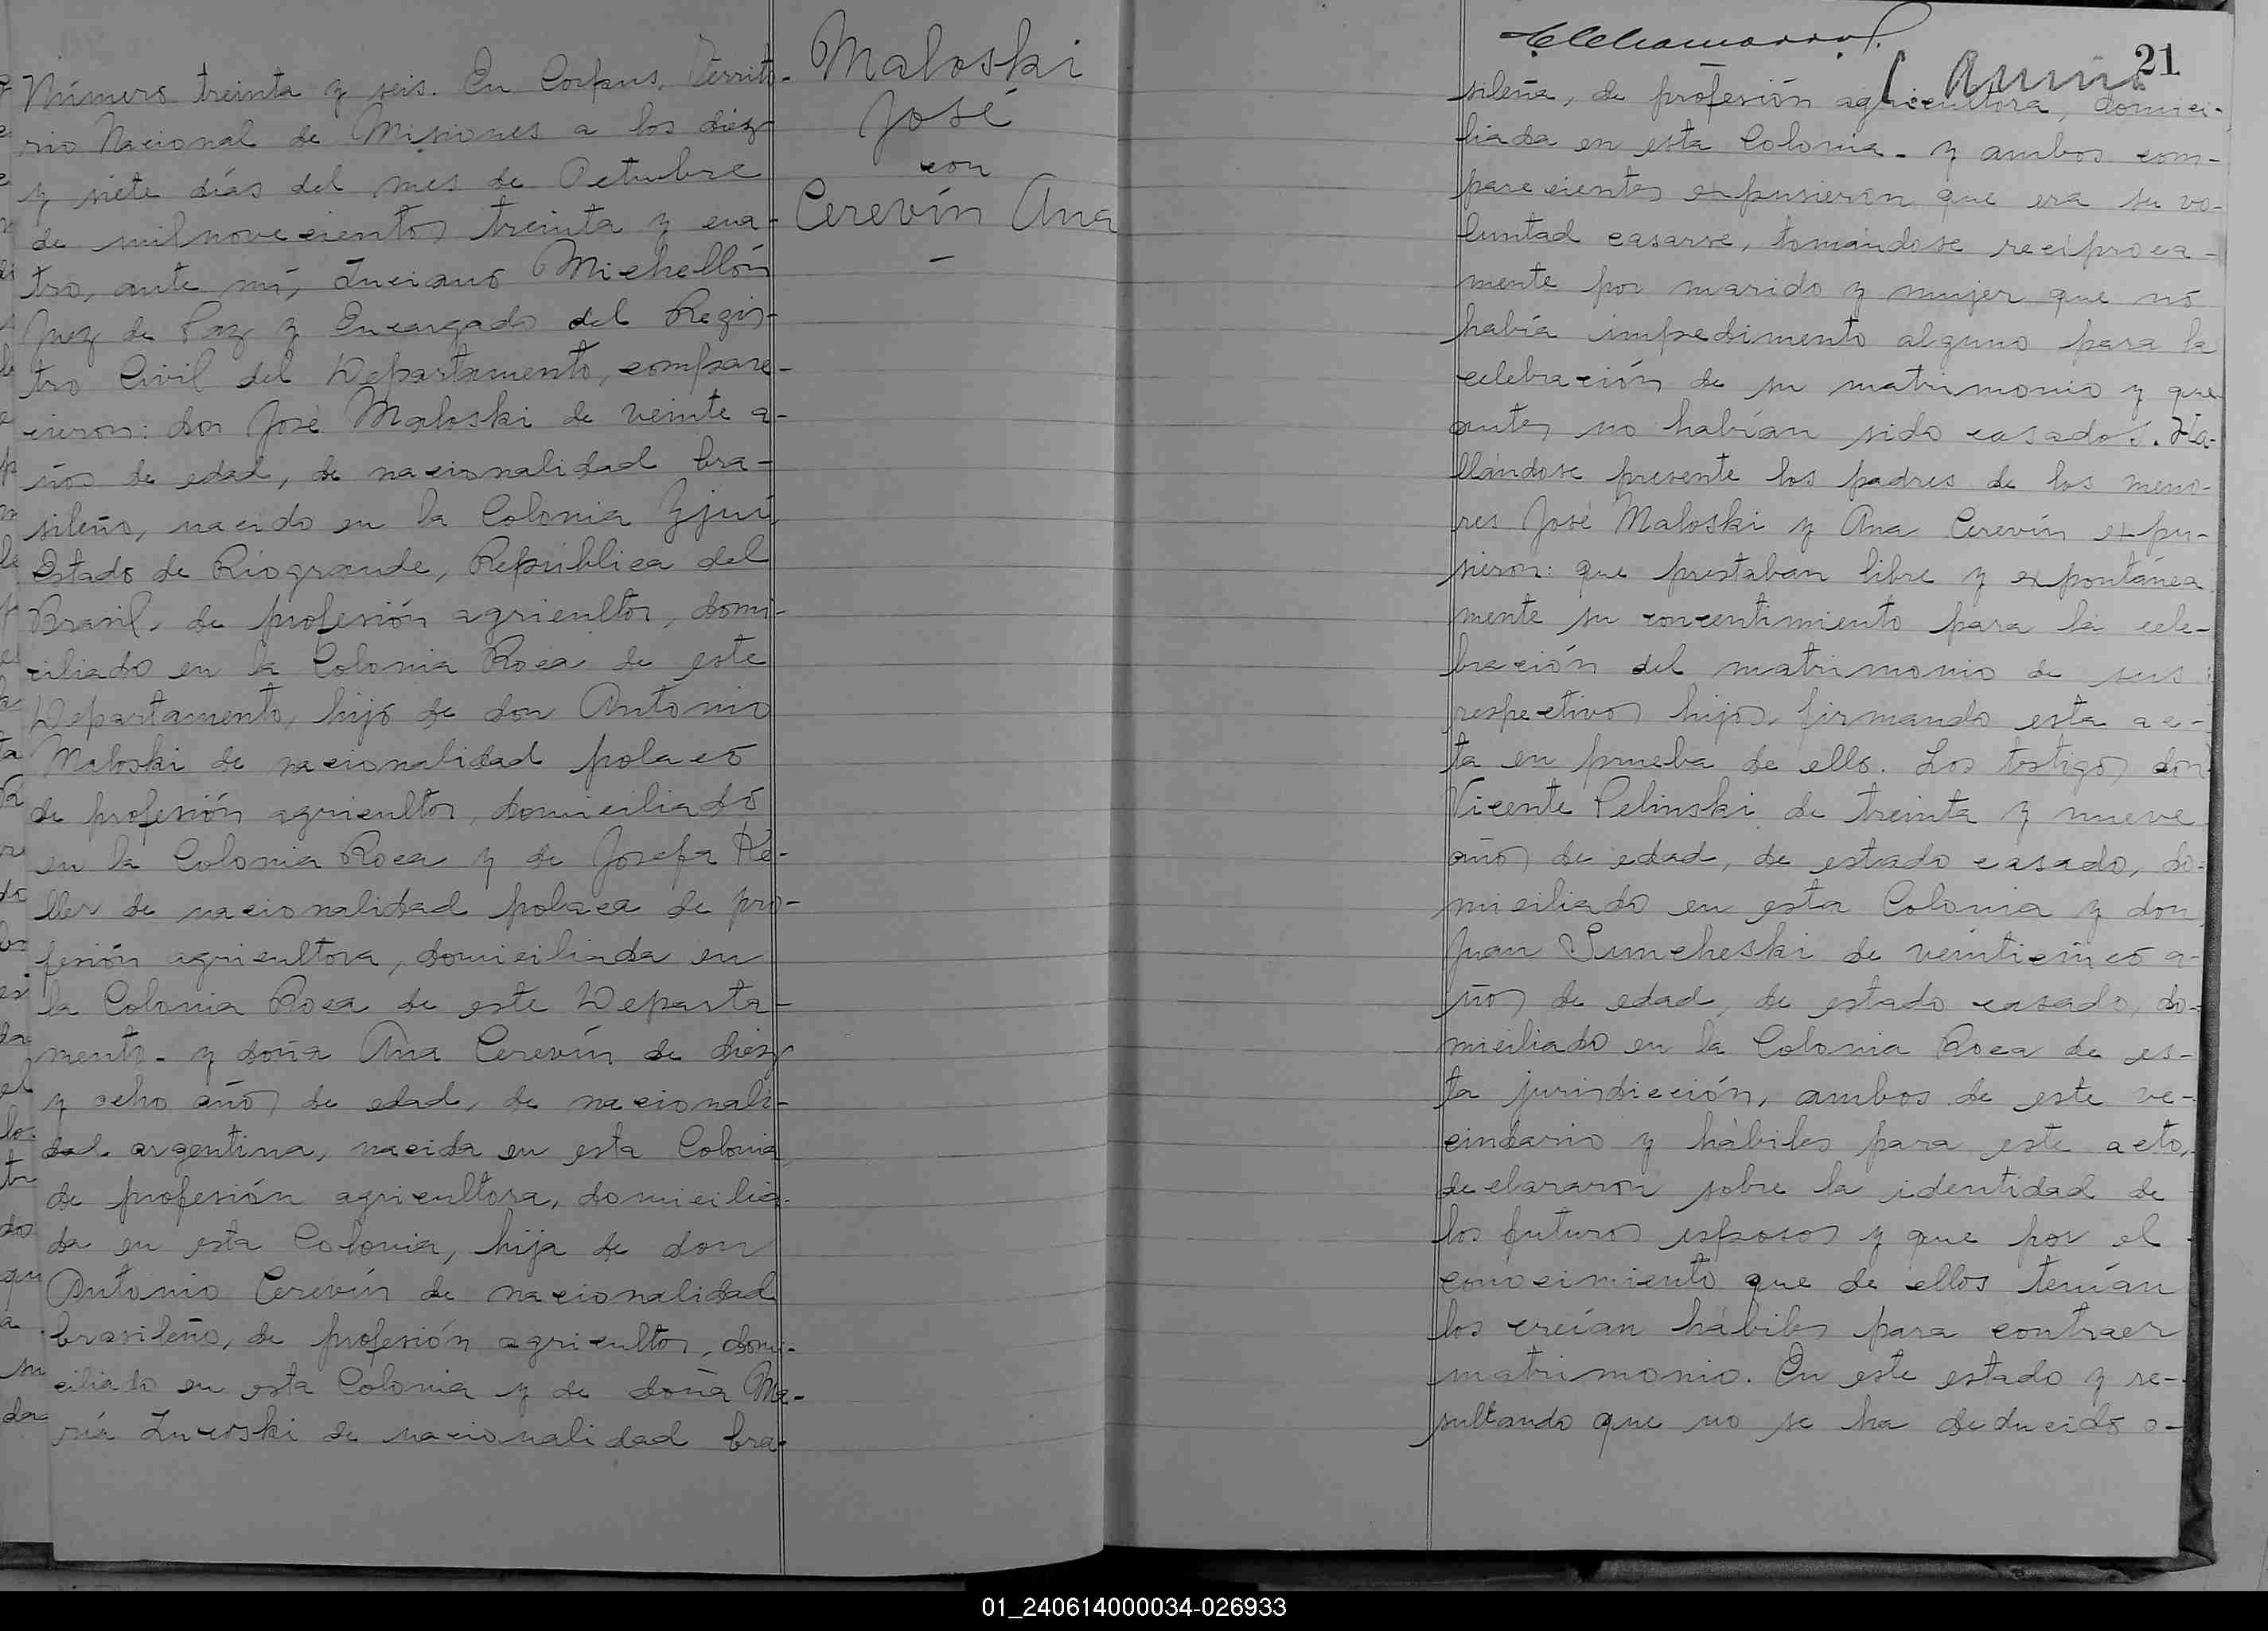 Número treinta y seis. En Corpus, Territo-
rio Nacional de Misiones a los diez
y siete días del mes de Octubre
de mil novecientos treinta y cua-
tro, ante mí, Luciano Michellón
Juez de Paz y Encargado del Regis-
tro Civil del Departamento, compare-
cieron: don José Maloski de veinte a-
ños de edad, de nacionalidad bra-
sileño, nacido en la Colonia Yjuí,
Estado de Riogrande, República del
Brasil, de profesión agricultor, domi-
ciliado en la Colonia Roca de este
Departamento, hijo de don Antonio
Maloski de nacionalidad polaco
de profesión agricultor, domiciliado
en la Colonia Roca y de Josefa Ke-
ller de nacionalidad polaca de pro-
fesión agricultora, domiciliada en
la Colonia Roca de este Departa-
mento - y doña Ana Cerevín de diez
y ocho años de edad, de nacionali-
dad argentina, nacida en esta Colonia
de profesión agricultora, domicilia-
da en esta Colonia, hija de don
Antonio Cerevín de nacionalidad
brasileño, de profesión agricultor, domi-
ciliado en esta Colonia y de doña Ma-
ría Zucoski de nacionalidad bra-
Maloski
José
con
Cerevín Ana
21
sileña, de profesión agricultora, domici-
liada en esta Colonia - y ambos com-
parecientes expusieron que era su vo-
luntad casarse, tomándose recíproca-
mente por marido y mujer que nó
había impedimento alguno para la
celebración de su matrimonio y que
antes no habían sido casados. Ha-
llándose presente los padres de los meno-
res José Maloski y Ana Cerevín expu-
sieron: que prestaban libre y expontánea
mente su concentimiento para la cele-
bración del matrimonio de sus
respectivos hijos, firmando esta ac-
ta en prueba de ello. Los testigos don
Vicente Pelinski de treinta y nueve
años de edad, de estado casado, do-
miciliado en esta Colonia y don
Juan Sumcheski de veinticinco a-
ños de edad, de estado casado, do-
miciliado en la Colonia Roca de es-
ta jurisdicción, ambos de este ve-
cindario y hábiles para este acto,
declararon sobre la identidad de
los futuros esposos y que por el
conocimiento que de ellos tenían
los creían hábiles para contraer
matrimonio. En este estado y re-
sultando que no se ha deducido o-
01_240614000034-026933